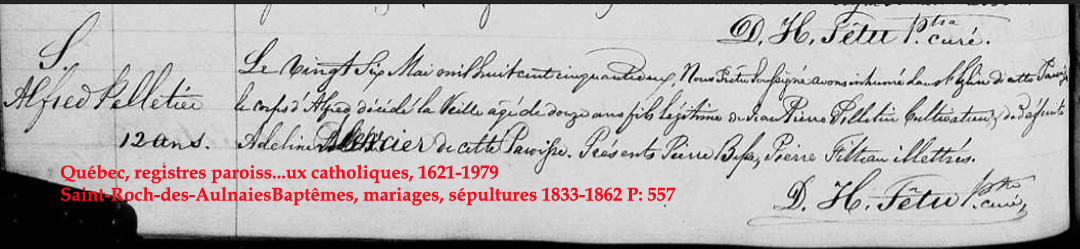 D. H. Têtu Ptre curé.
S.
Alfred Pelletier
12 ans.
Le Vingt Six Mai mil huit cent cinquante deux, Nous Prêtre Soussigné avons inhumé dans l'Eglise de cette Paroisse
le corps d'Alfred décédé la Veille âgé de douze ans fils légitime de Jean Pierre Pelletier Cultivateur, & de défunte
Adeline Mercier de cette Paroisse. Présents Pierre illettrés.
D. H. Têtu Ptre curé,
Québec, registres paroiss...ux catholiques, 1621-1979
Saint-Roch-des-AulnaiesBaptêmes, mariages, sépultures 1833-1862 P: 557